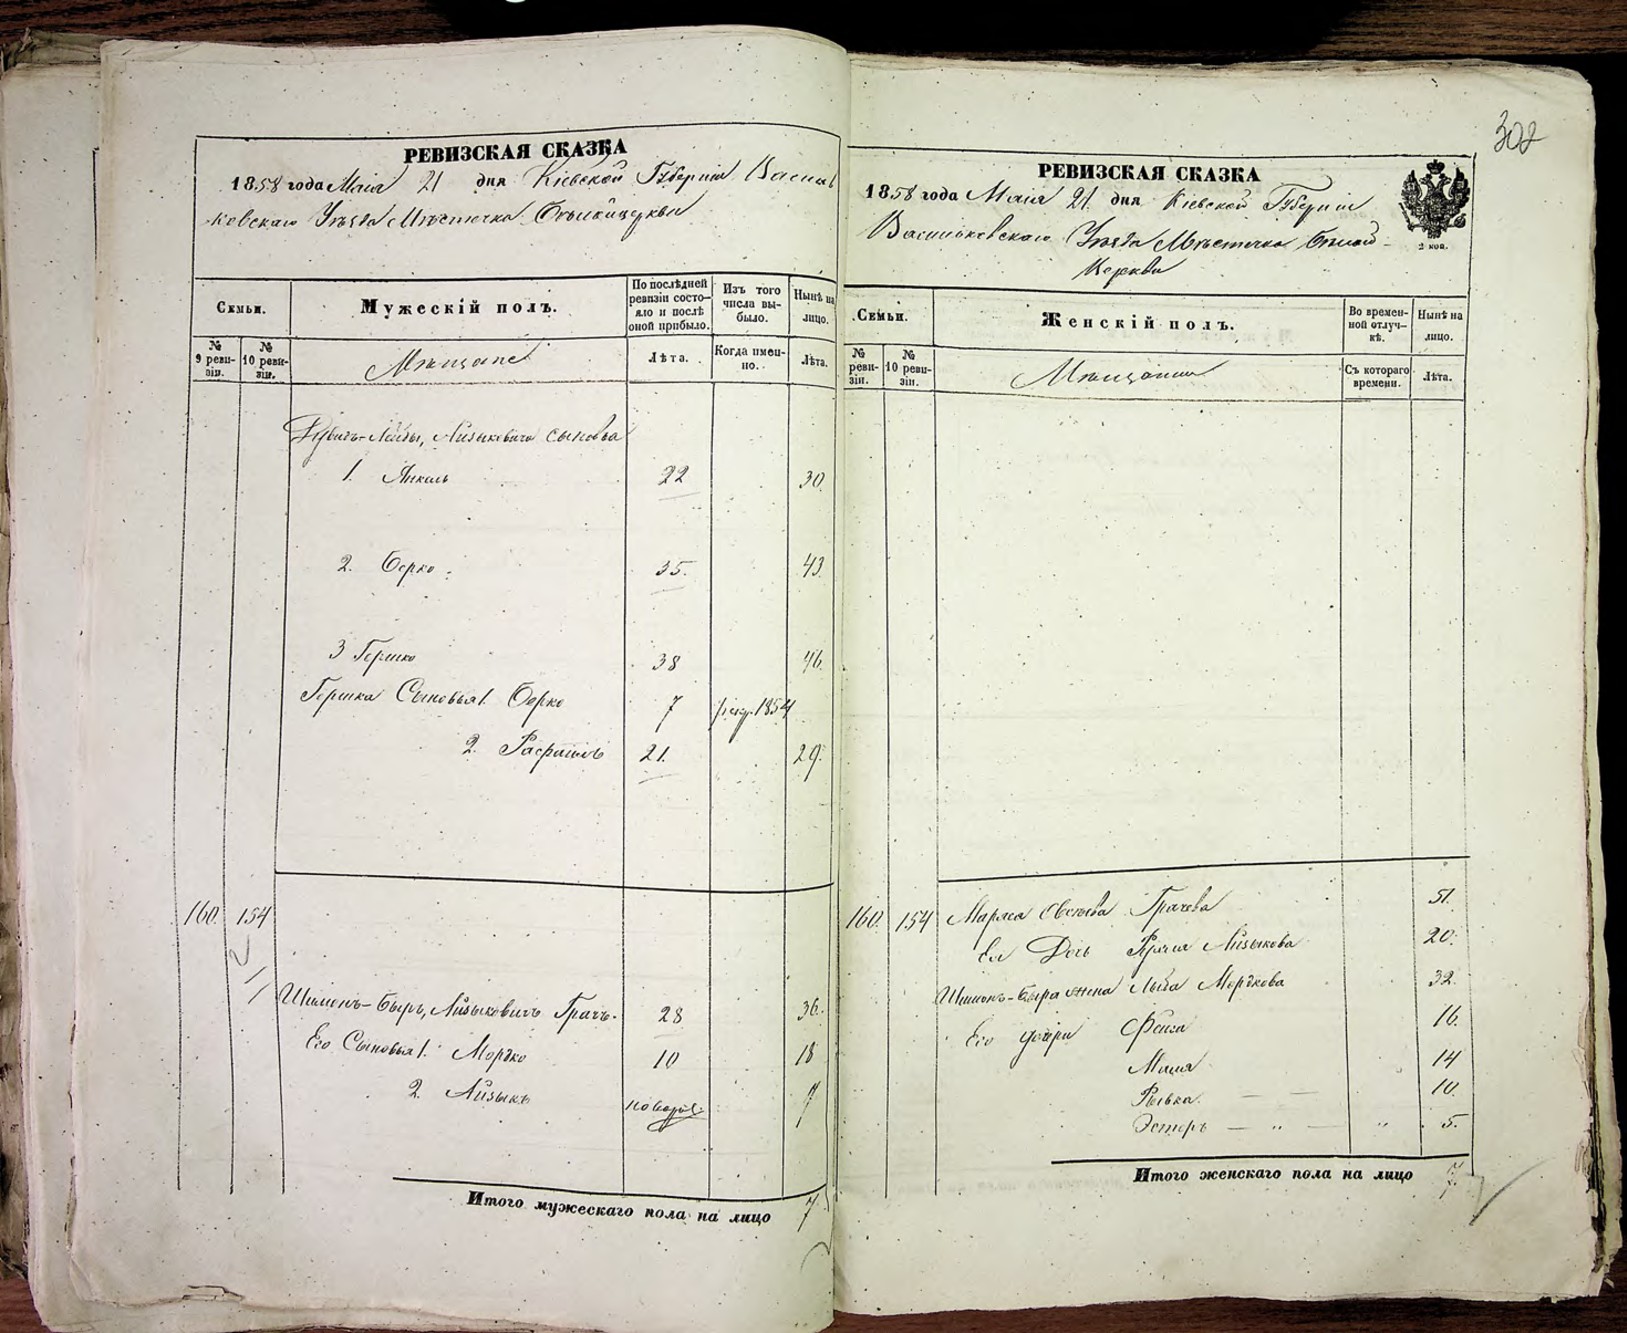 302
РЕВИЗСКАЯ СКАЗКА
1858 года Маія 21 дня Кіевской Губерніи Василь
ковскаго Уѣзда Мѣстечка Бѣлойцеркви
Семьи.
Мужескій полъ.
По послѣдней ревизіи состо-яло и послѣ оной прибыло.
Изъ того числа вы-было.
Нынѣ на лицо.
№ 9 реви-зіи.
№ 10 реви-зіи.
Мѣщане
Лѣта.
Когда имен-но.
Лѣта.
Айзыковича сыновья
1. Янкель 22 30.
2. Берко 35. 43.
3 Гершко 38 46.
Гершка Сыновья 1. Берко 7 1854
2. 21. 29.
160. 154
Шимонъ-Беръ, Айзыковичъ Грачъ. 28 36.
Его Сыновья 1. Мордко 10 18
2. Айзыкъ 7
Итого мужескаго пола на лицо 7
РЕВИЗСКАЯ СКАЗКА
1858 года Маія 21. дня Кіевской Губерніи
Васильковскаго Уѣзда Мѣстечка Бѣлой-
Церкви
2 коп.
Семьи.
Женскій полъ.
Во времен-ной отлуч-кѣ.
Нынѣ на лицо.
№ реви-зіи.
№ 10 реви-зіи.
Мѣщанки
Съ котораго времени.
Лѣта.
160. 154 Маряса Грачева 51.
Ея Дочь Айзыкова 20.
Шимонъ-Бера жена Мордкова 32.
Его дочери Фейга 16.
Маша 14
Рывка 10.
Эстеръ — „ — „ 5.
Итого женскаго пола на лицо 7